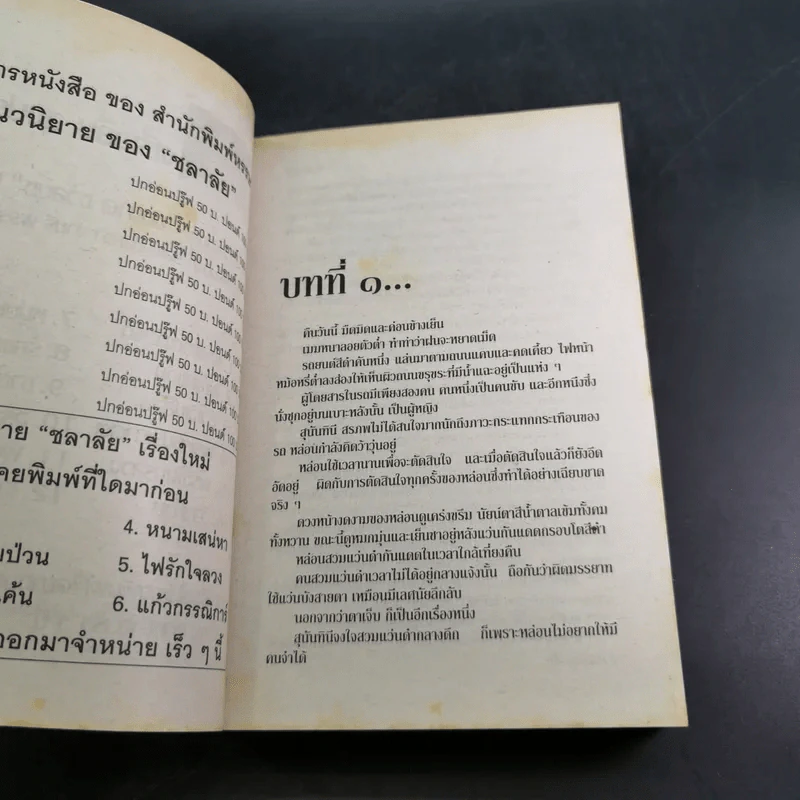 ารหนังสือ ของ สำนักพิมพ์
นวนิยาย ของ “ชลาลัย”
ปกอ่อนปรู๊ฟ 50 บ. ปอนด์ 100
ปกอ่อนปรู๊ฟ 50 บ. ปอนด์ 100
ปกอ่อนปรู๊ฟ 50 บ. ปอนด์ 100
ปกอ่อนปรู๊ฟ 50 บ. ปอนด์ 100
ปกอ่อนปรู๊ฟ 50 บ. ปอนด์ 100
ปกอ่อนปรู๊ฟ 50 บ. ปอนด์ 100
ปกอ่อนปรู๊ฟ 50 บ. ปอนด์ 100
ปกอ่อนปรู๊ฟ 50 บ. ปอนด์ 100
ปกอ่อนปรู๊ฟ 50 บ. ปอนด์ 100
าย “ชลาลัย” เรื่องใหม่
คยพิมพ์ที่ใดมาก่อน
4. หนามเสน่หา
ป่วน 5. ไฟรักใจลวง
ค้น 6. แก้วกรรณิการ์
ออกมาจำหน่าย เร็ว ๆ นี้
บทที่ ๑...
คืนวันนี้ มืดมิดและค่อนข้างเย็น
เมฆหนาลอยตัวต่ำ ทำท่าว่าฝนจะหยาดเม็ด
รถยนต์สีดำคันหนึ่ง แล่นมาตามถนนแคบและคดเคี้ยว ไฟหน้า
หม้อหรี่ต่ำลงส่องให้เห็นผิวถนนขรุขระที่มีน้ำแฉะอยู่เป็นแห่ง ๆ
ผู้โดยสารในรถมีเพียงสองคน คนหนึ่งเป็นคนขับ และอีกหนึ่งซึ่ง
นั่งซุกอยู่บนเบาะหลังนั้น เป็นผู้หญิง
สุนันทินี สรภพไม่ได้สนใจมากนักถึงภาวะกระแทกกระเทือนของ
รถ หล่อนกำลังคิดว้าวุ่นอยู่
หล่อนใช้เวลานานเพื่อจะตัดสินใจ และเมื่อตัดสินใจแล้วก็ยังอึด
อัดอยู่ ผิดกับการตัดสินใจทุกครั้งของหล่อนซึ่งทำได้อย่างเฉียบขาด
จริง ๆ
ดวงหน้างดงามของหล่อนดูเคร่งขรึม นัยน์ตาสีน้ำตาลเข้มทั้งคม
ทั้งหวาน ขณะนี้ดูหมกมุ่นและเย็นชาอยู่หลังแว่นกันแดดกรอบโตสีดำ
หล่อนสวมแว่นดำกันแดดในเวลาใกล้เที่ยงคืน
คนสวมแว่นดำเวลาไม่ได้อยู่กลางแจ้งนั้น ถือกันว่าผิดมรรยาท
ใช้แว่นบังสายตา เหมือนมีเลศนัยลึกลับ
นอกจากว่าตาเจ็บ ก็เป็นอีกเรื่องหนึ่ง
สุนันทินีจงใจสวมแว่นดำกลางดึก ก็เพราะหล่อนไม่อยากให้มี
คนจำได้